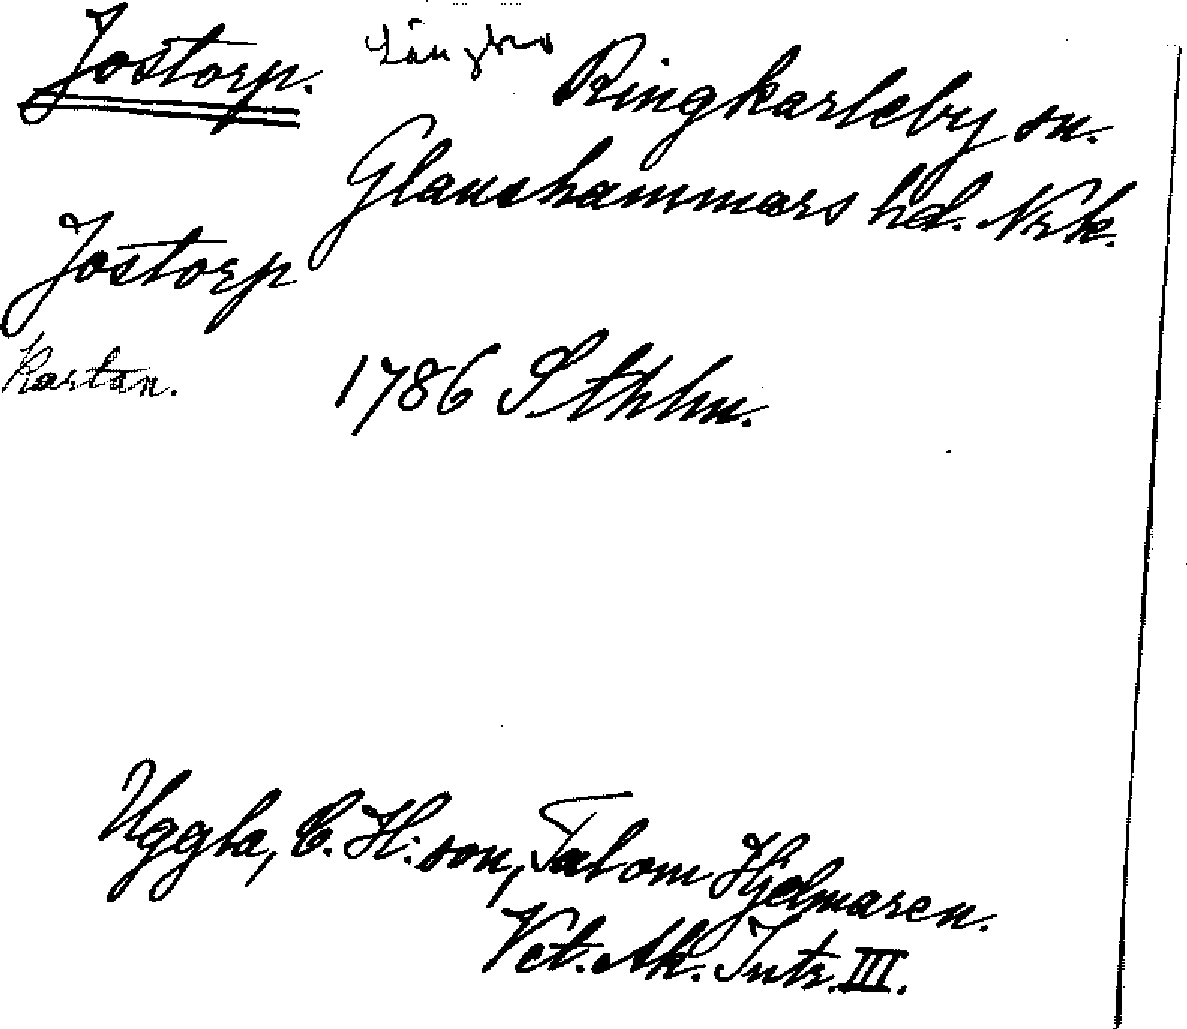 Jostorp. Längbro Ringkarleby sn.
Glanshammars hd. Nrk.
Jostorp
kartan. 1786 Sthlm.
Uggla, C. H:son, Tal om Hjelmaren.
Vet. Ak. Intr. III.